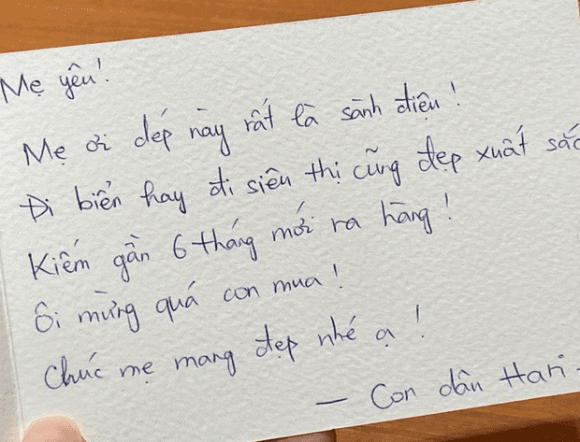 Mẹ yêu!
Mẹ ơi dép này rất là sành điệu!
Đi biển hay đi siêu thị cũng đẹp xuất sắc
Kiếm gần 6 tháng mới ra hàng!
Ôi mừng quá con mua!
Chúc mẹ mang đẹp nhé ạ!
— Con dâu Hari -